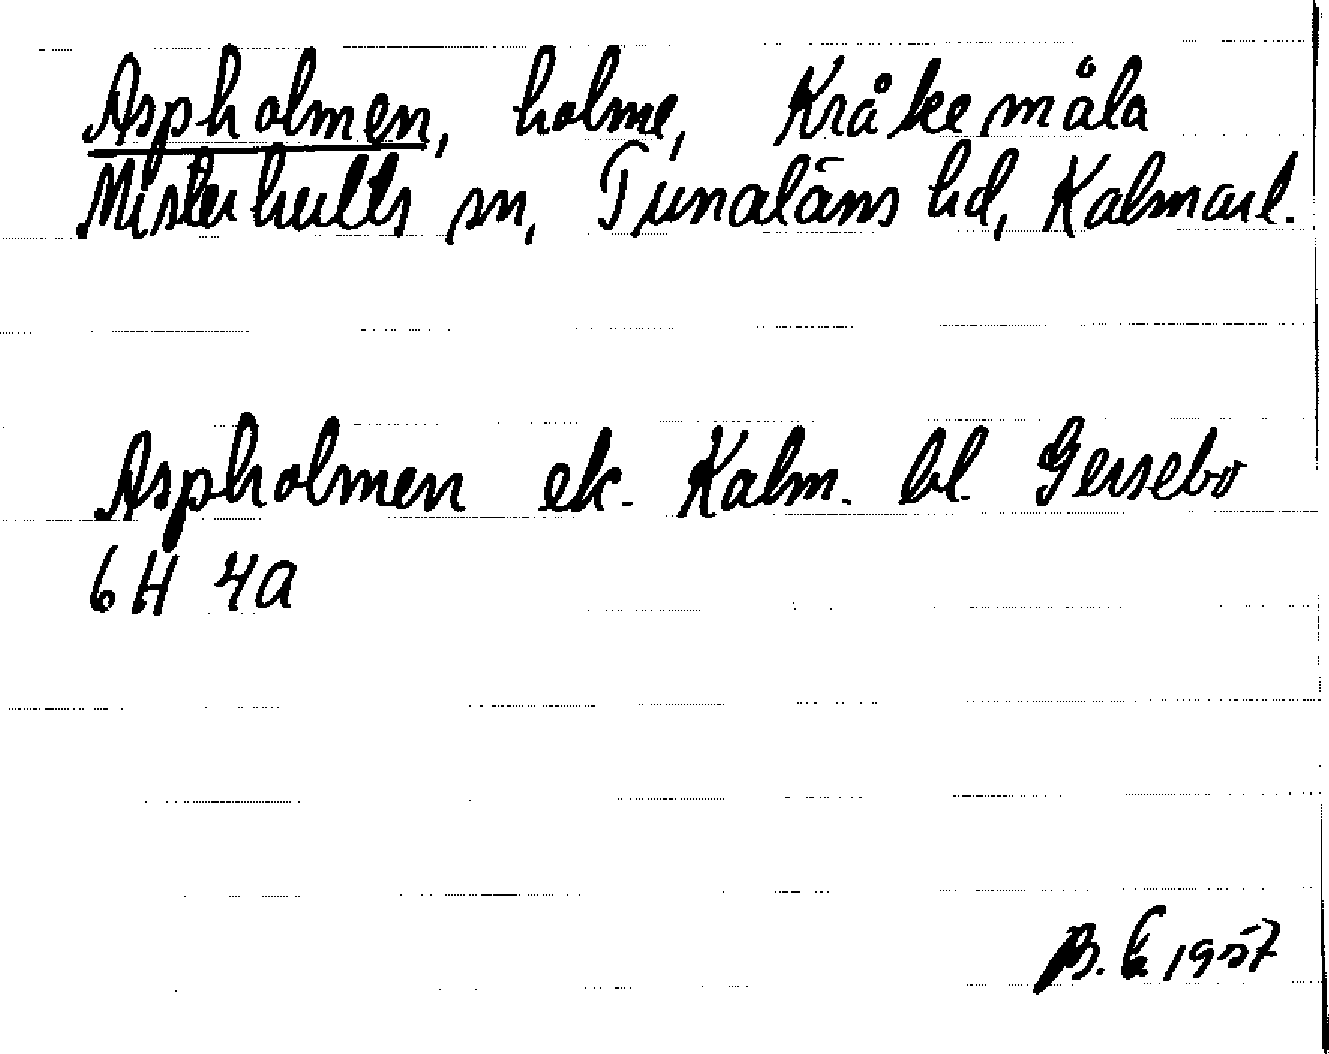 Aspholmen, holme, Kråkemåla
Misterhults sn, Tunaläns hd, Kalmarl.
Aspholmen ek. Kalm. bl Gersebo
6H 4a
B. E 1957